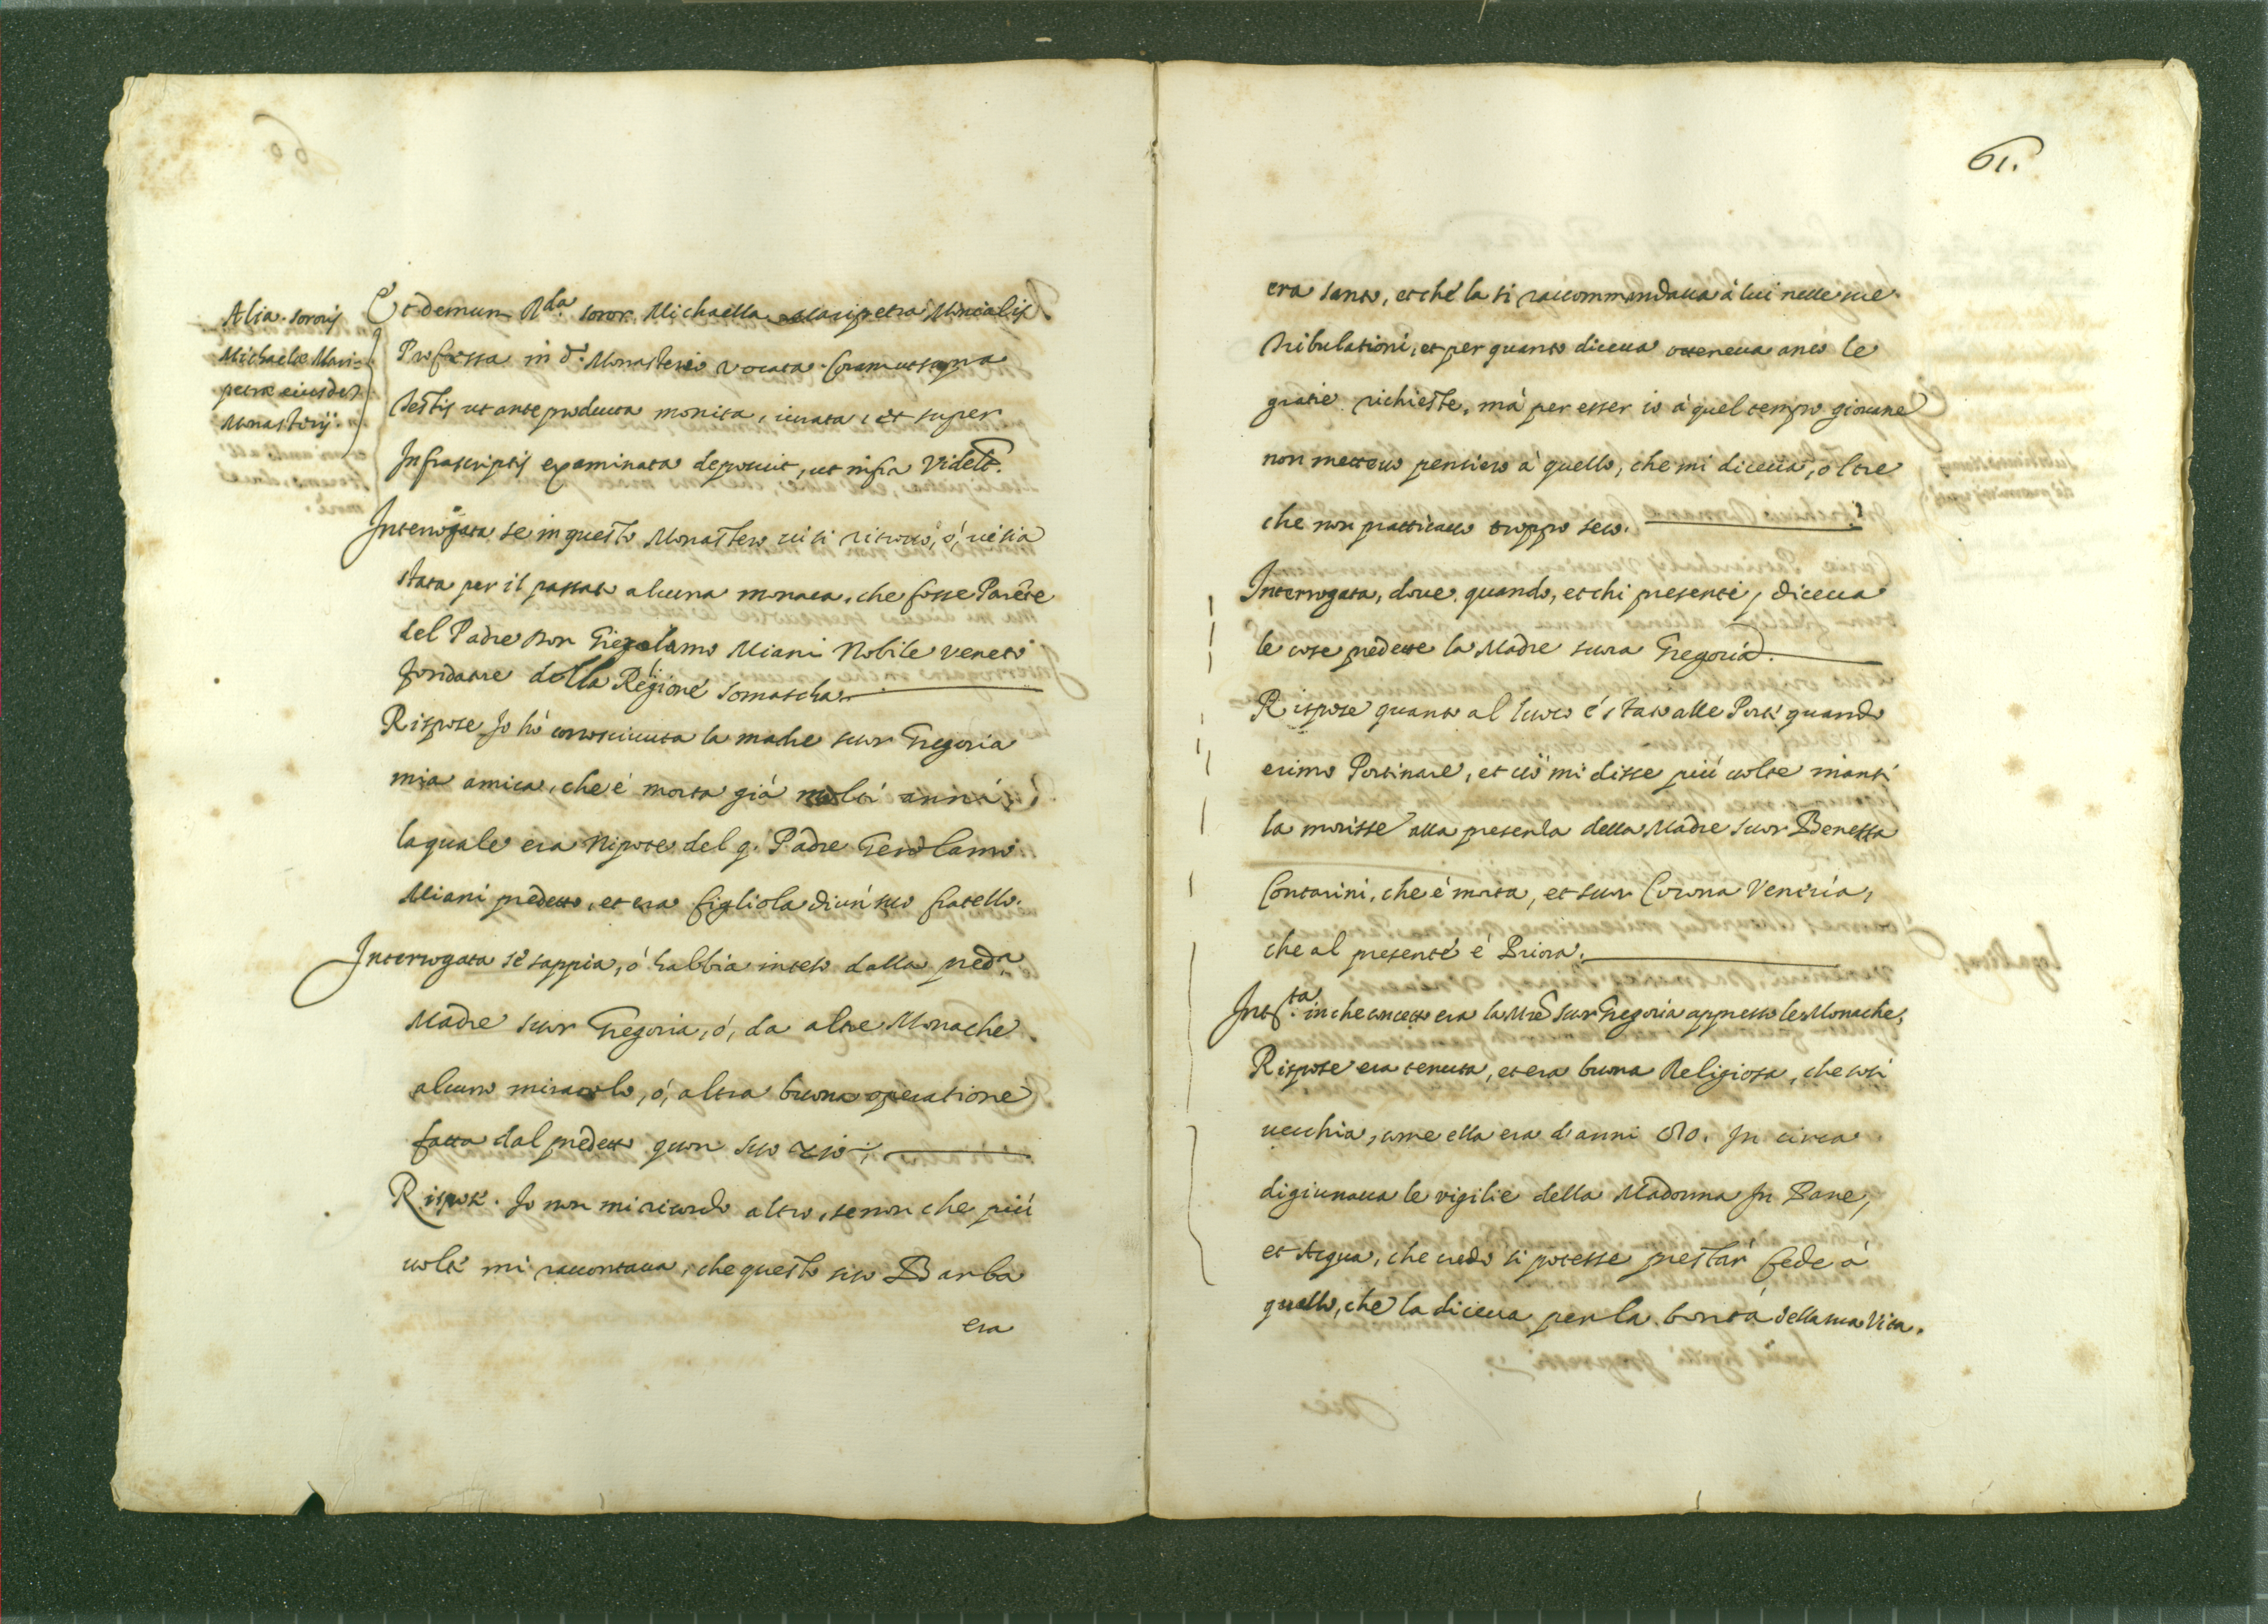 Alia sororis
Michaelae Mari=
petrae eiusdem
Monasterij.
Et demum Rda. soror Michaella Maripetra Monialis
Professa in d.o Monasterio vocata coram ut supra
testis ut ante producta monita, iurata, et super
Infrascriptis examinata deposuit, ut infra Videlt.
Interrogata se in questo Monastero vi si ritrovi, ò, vi sia
stata per il passato alcuna monaca, che fosse Parẽte
del Padre Don Gierolamo Miani Nobile Veneto
fondatore della Regione Somascha.
Rispose Io hò conosciuta la madre suor Gregoria
mia amica, che è morta già molti anni,
la quale era Nipote del q. Padre Gerolamo
Miani predetto, et era figliola di un suo fratello.
Interrogata se sappia, ò habbia inteso dalla preda.
Madre suor Gregoria, ò, da altre Monache
alcuno miracolo, ò, altra buona operatione
fatta dal predetto quon suo zio;
Rispose. Io non mi ricordo altro, se non che più
volte mi raccontava, che questo suo Barba
era
61.
era santo, et che la si raccommandava à lui nelle sue
tribulationi, et per quanto diceva otteneva anco le
gratie richieste, mà per esser io à quel tempo giovane
non metteuo pensiero à quello, che mi diceua, oltre
che nonratticauo troppo seco.
Interrogata, doue, quando, et chi presente, diceua
le cose predette la Madre suora Gregoria.
Rispose quanto al luoco è stato alle Porte quando
erimo Portinare, et ciò mi disse più uolte inanti
la morisse alla presenza della Madre suor Benetta
Contarini, che è morta, et suor Corona Veneria,
che al presente è Priora.
Intta. in che concetto era la Mre suor Gregoria appresso le Monache,
Rispose era tenuta, et era buona Religiosa, che così
uecchia, come ella era d'anni 80. In circa
digiunaua le vigilie della Madonna In Pane,
et Acqua, che credo si potesse prestar fede à
quello, che la diceua per la bontà della sua Vita.